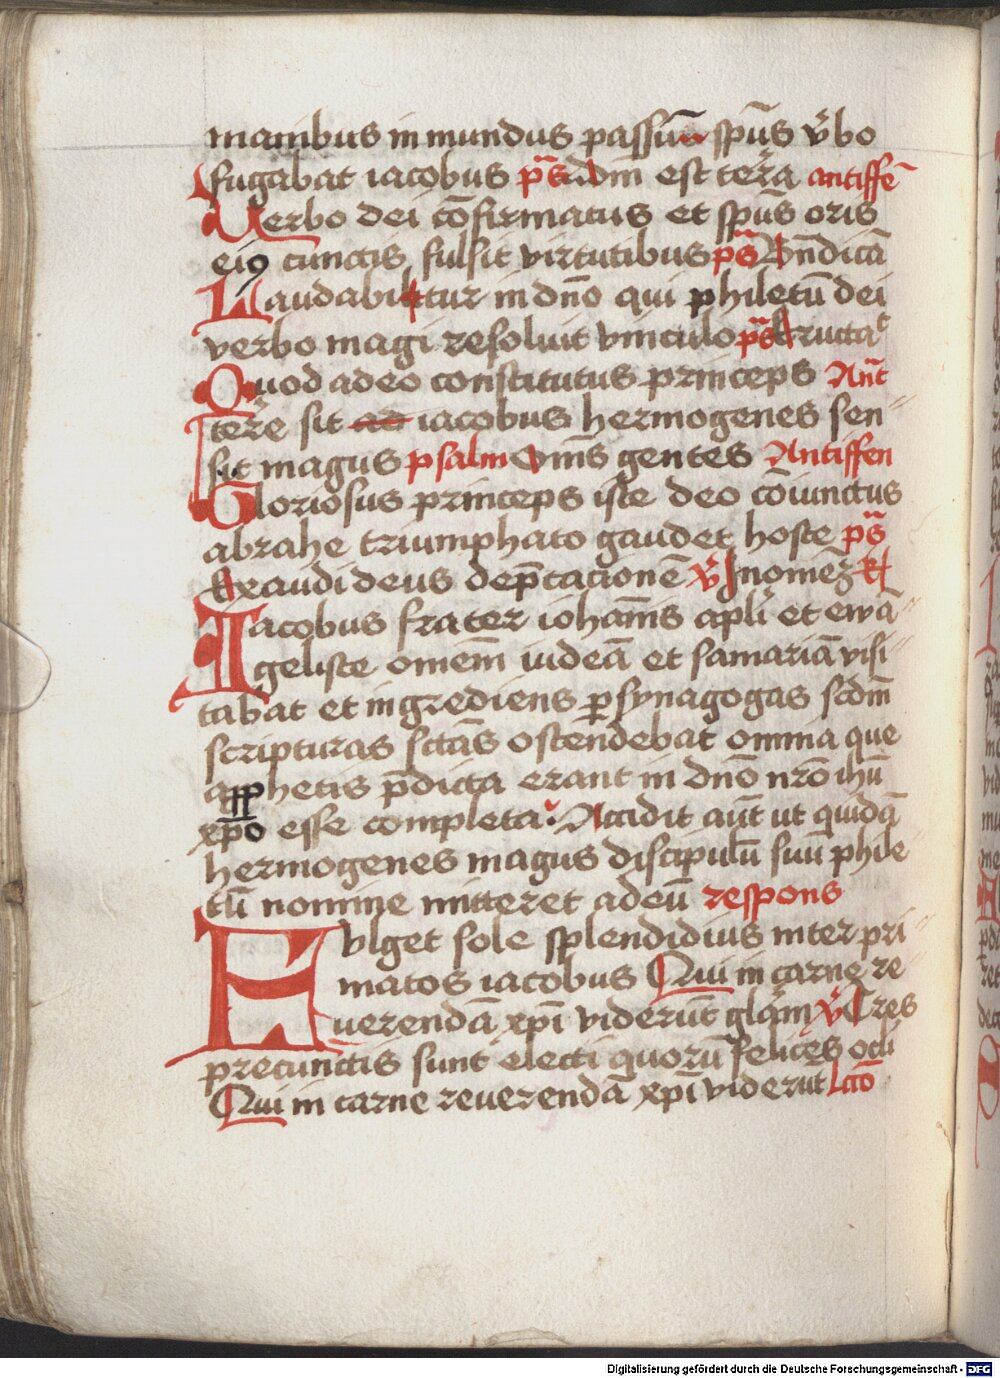 manibus in mundus passim spūs v̾bo
fugabat iacobus ps̄ dn̄i est terra antiffē
Verbo dei cōfirmatus et spūs oris
eiꝰ cunctis fulsit virtutibus ps̄ Bn̄dicā
Laudabitur in dn̄o qui philetū dei
verbo magi resoluit vinculo ps̄ Eructaᶜ
Quod a deo constitutus princeps Anᵗ
terre sit ad iacobus hermogenes sen
sit magus psalm Om̄s gentes Antiffen
Gloriosus princeps iste deo cōiunctus
abrahe triumphato gaudet hoste ps̄
Exaudi deus dep̄cacionē v̾ In omēꝫ R
Iacobus frater iohan̄is apl̄i et ewā
geliste omēm iudeā et samariā visi
tabat et ingrediens ꝑ synagogas scd̄m
scripturas sct̄as ostendebat omnia que
a pphetis p̄dicta erant in dn̄o nr̄o ihū
xp̄o esse completa. Accidit aūt ut quidā
hermogenes magus discipulū suū phile
tū nomine mitteret ad eū respons
Fvlget sole splendidius inter pri
matos iacobus Qui in carne re
uerendā xp̄i viderūt glōam v̾ Tres
precunctis sunt electi quorū felices oclī
Qui in carne reuerendā xp̄i viderūt lc̄o
Digitalisierung gefördert durch die Deutsche Forschungsgemeinschaft - DFG